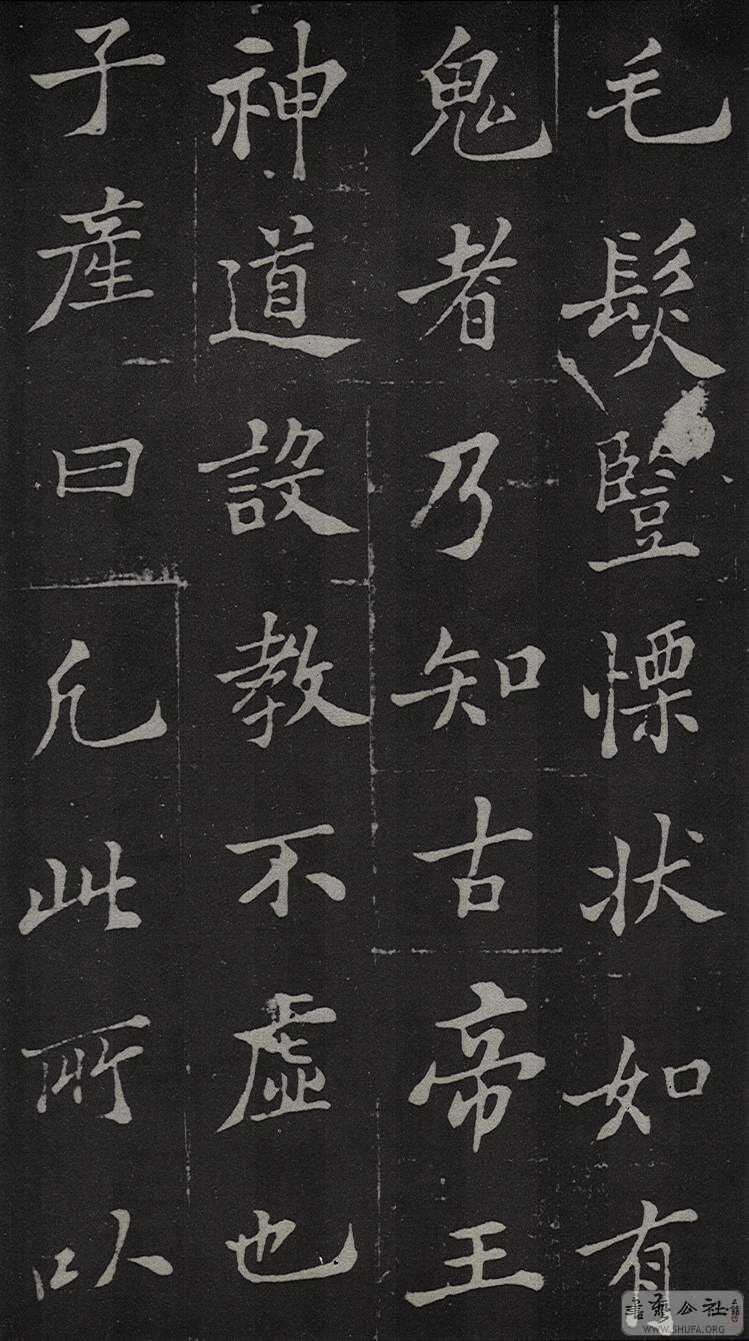 毛髮豎慄狀如有
鬼者乃知古帝王
神道設教不虛也
子產曰凡此所以
書藝公社
WWW.SHUFA.ORG